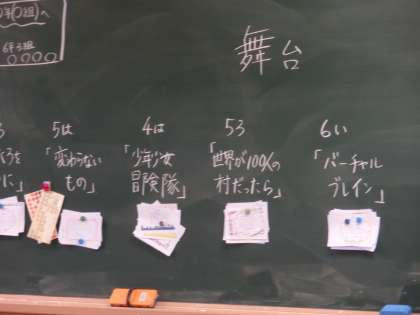 へ
6年3組
○○○○
舞台
5は
「変わらない
もの」
4は
「少年少女
冒険隊」
53
「世界が100人の
村だったら」
6い
「バーチャル
ブレイン」